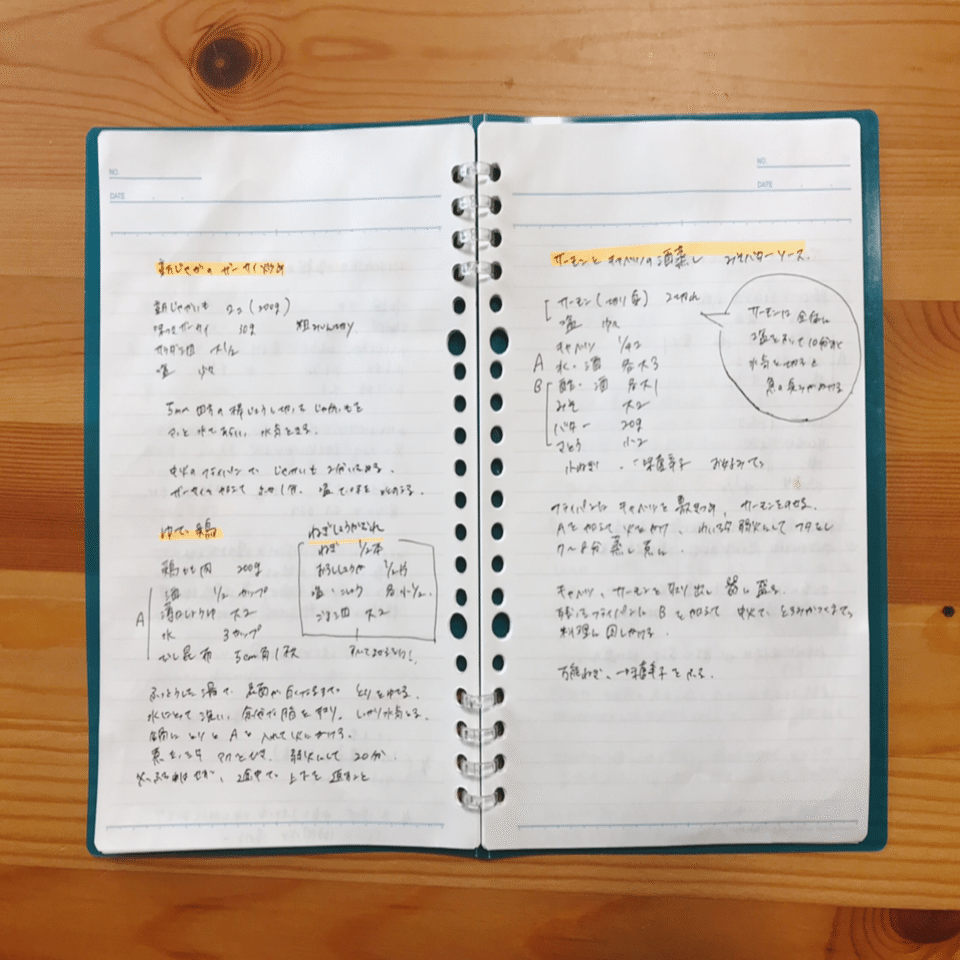 NO.
DATE
新じゃがのザーサイ炒め
新じゃがいも 2コ(200g)
味つきザーサイ 30g 粗みじん切り
サラダ油 大1/2
塩 少々
5mm四方の棒じょうに切ったじゃがいもを
さっと水であらい、水気をとる。
中火のフライパンで じゃがいも 2分いためる。
ザーサイを加えて 1分。塩で味を ととのえる。
ゆで鶏
鶏もも肉 200g
A
酒 1/2カップ
薄口しょうゆ 大2
水 3カップ
だし昆布 5cm角1枚
ねぎしょうがだれ
ねぎ 1/2本
おろししょうが 1/2片
塩・こしょう 各小1/2
ごま油 大2
すべてまぜる!
ふっとうした湯で 表面が白くなるまで とりをゆでる。
水にとって洗い、余分な脂をとり、しっかり水気をとる。
鍋に とりと Aを 入れて火にかける。
煮立ったら アクをとり、弱火にして 20分。
途中で 上下を返すこと
NO.
DATE
サーモンとキャベツの酒蒸し みそバターソース
サーモン(切り身) 2切れ
塩 少々
キャベツ 1/4コ
A 水・酒 各大3
B 酢・酒 各大1
みそ 大2
バター 20g
さとう 小2
小ねぎ、一味唐辛子 お好みで
サーモンは 全体に
塩をふって10分おく
水気を切ると
魚の臭みがぬける
フライパンに キャベツを 敷きつめ、サーモンをのせる。
Aを加えて 火にかけ、わいたら 弱火にして フタをし
7〜8分 蒸し煮に。
キャベツ、サーモンを取り出し 器に盛る。
残ったフライパンに Bを加えて 中火で とろみがつくまで。
料理に 回しかける。
万能ねぎ、一味唐辛子をふる。